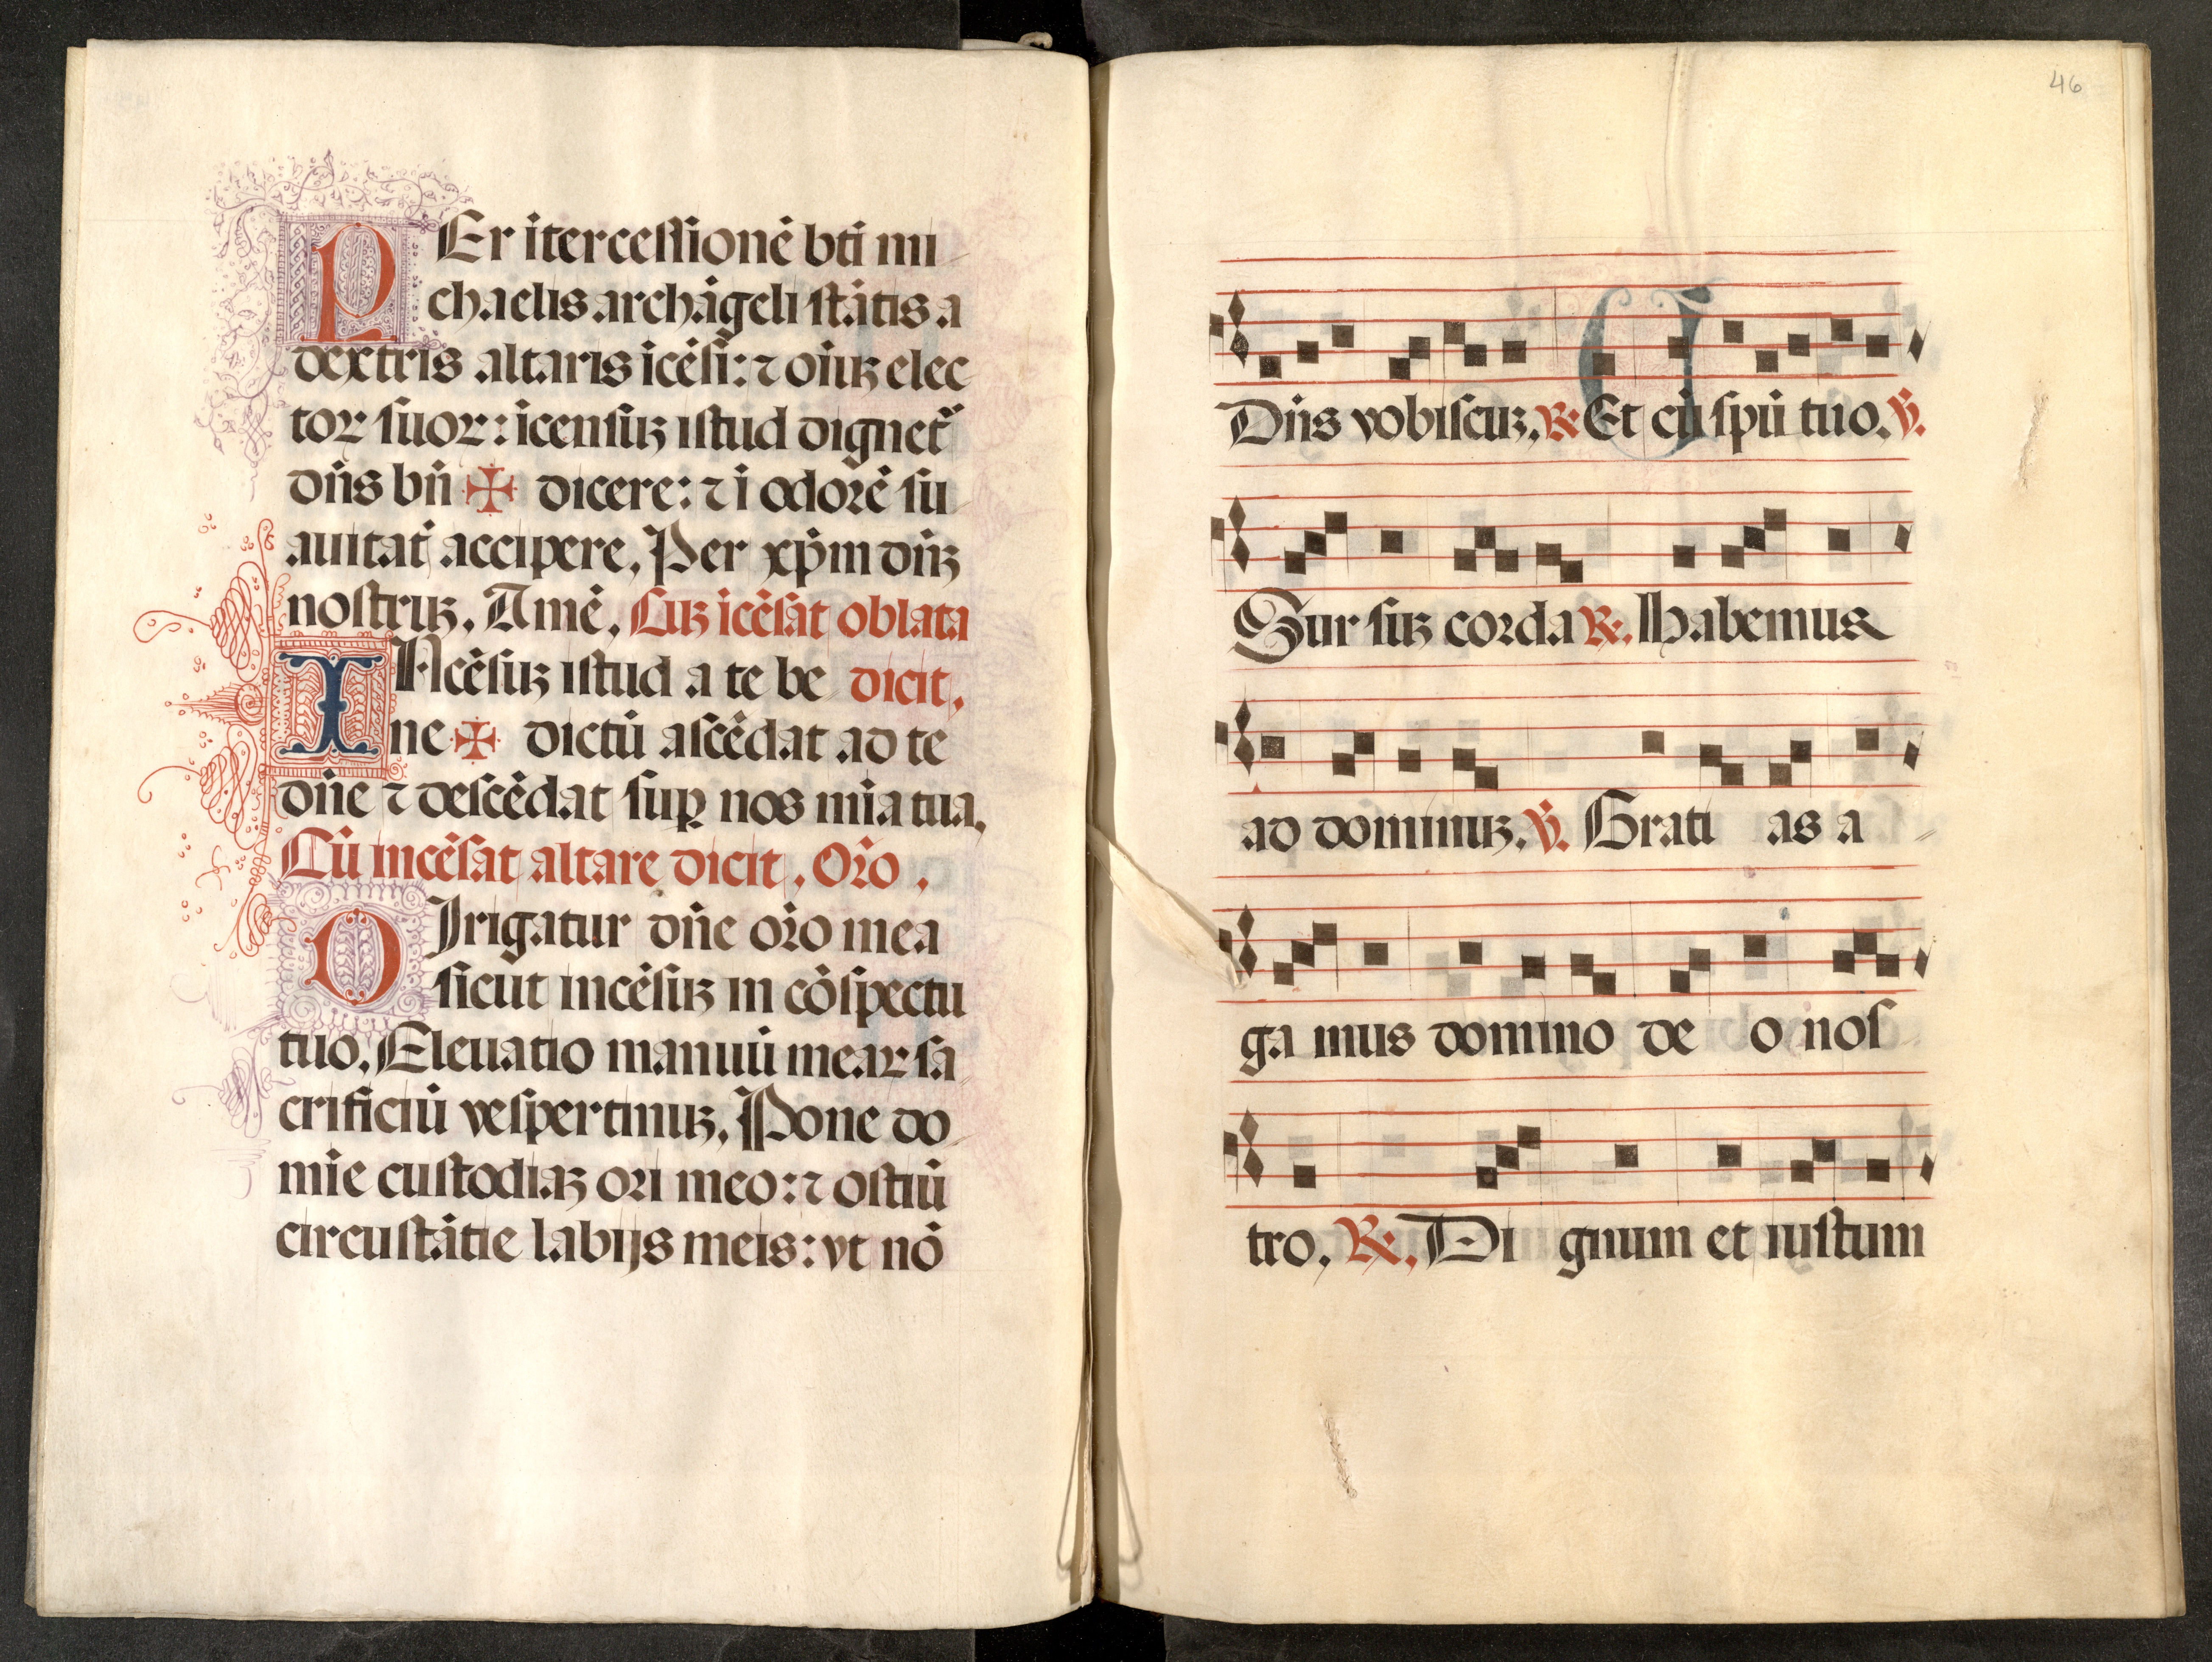 PEr itercessionē bti mi
chaelis archāgeli stātis a
dextris altaris icēsi: ⁊ oiuꝫ elec
toꝝ suoꝝ: icensuꝫ istud dignet᷑
dn̄s bn̄ ✠ dicere: ⁊ i odorē su
auitat accipere. Per xp̄m dn̄ꝫ
nostruꝫ. Amē. Cuꝫ icēsat oblata
INcēsuꝫ istud a te be dicit.
ne ✠ dictū ascēdat ad te
dn̄e ⁊ descēdat suꝑ nos mīa tua.
Cū incēsat altare dicit. Oro.
DIrigatur dn̄e oro mea
sicut incēsuꝫ in cōspectu
tuo. Eleuatio manuū meaꝝ sa
crificiū vespertinuꝫ. Pone do
mie custodiaꝫ ori meo: ⁊ ostiū
circustātie labijs meis: vt nō
46
Dn̄s vobiscuꝫ. ℟. Et cū spū tuo. ℣.
Sur suꝫ corda ℟. Habemus
ad dominuꝫ. ℣. Grati as a
ga mus domino de o nos
tro. ℟. Di gnum et iustum